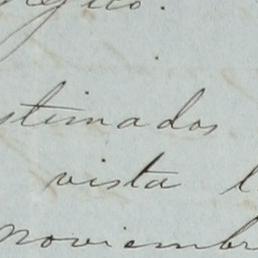 stimados
vista l
noviembr